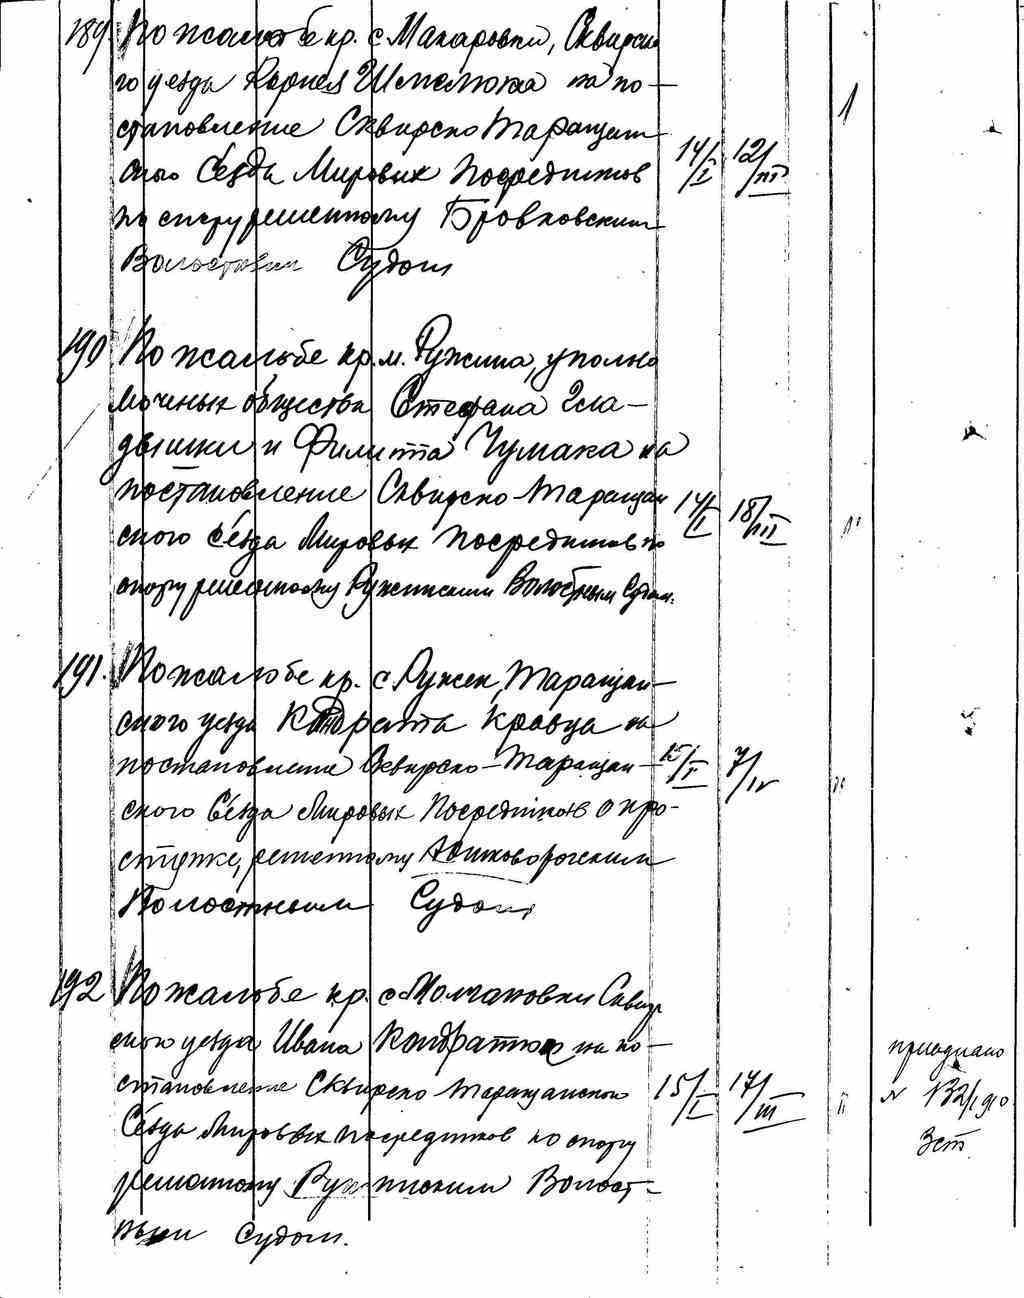 189. По жалобе кр. с. Макаровки, Сквирска-
го уезда Корнея Шмелюка на по-
становление Сквирско-Таращан-
ского Съезда Мировых Посредников 14/I 12/III 1
по спору решенному Бровковским
Волостным Судом
190 По жалобе кр. м. Ружина, уполно
моченых общества Стефана Гла-
дышки и Филиппа Чумака на
постановление Сквирско-Таращан 14/I 18/III "
ского съезда Мировых Посредников по
спору решенному Ружинским Волостным Судом.
191. По жалобе кр. с. Ружек, Таращан-
ского уезда Кондрата Кравца на
постановление Сквирско-Таращан- 15/I 7/IV "
ского Съезда Мировых Посредников о про-
ступке, решенному
Волостным Судом
192 По жалобе кр. с. Молчановки Сквир
ского уезда Ивана Кондратюка на по-
становление Сквирско Таращанского 15/I 17/III "
Съезда Мировых посредников по спору
решенному Ружинским Волост-
ным Судом.
приобщено
к 132/1910
3 ст.